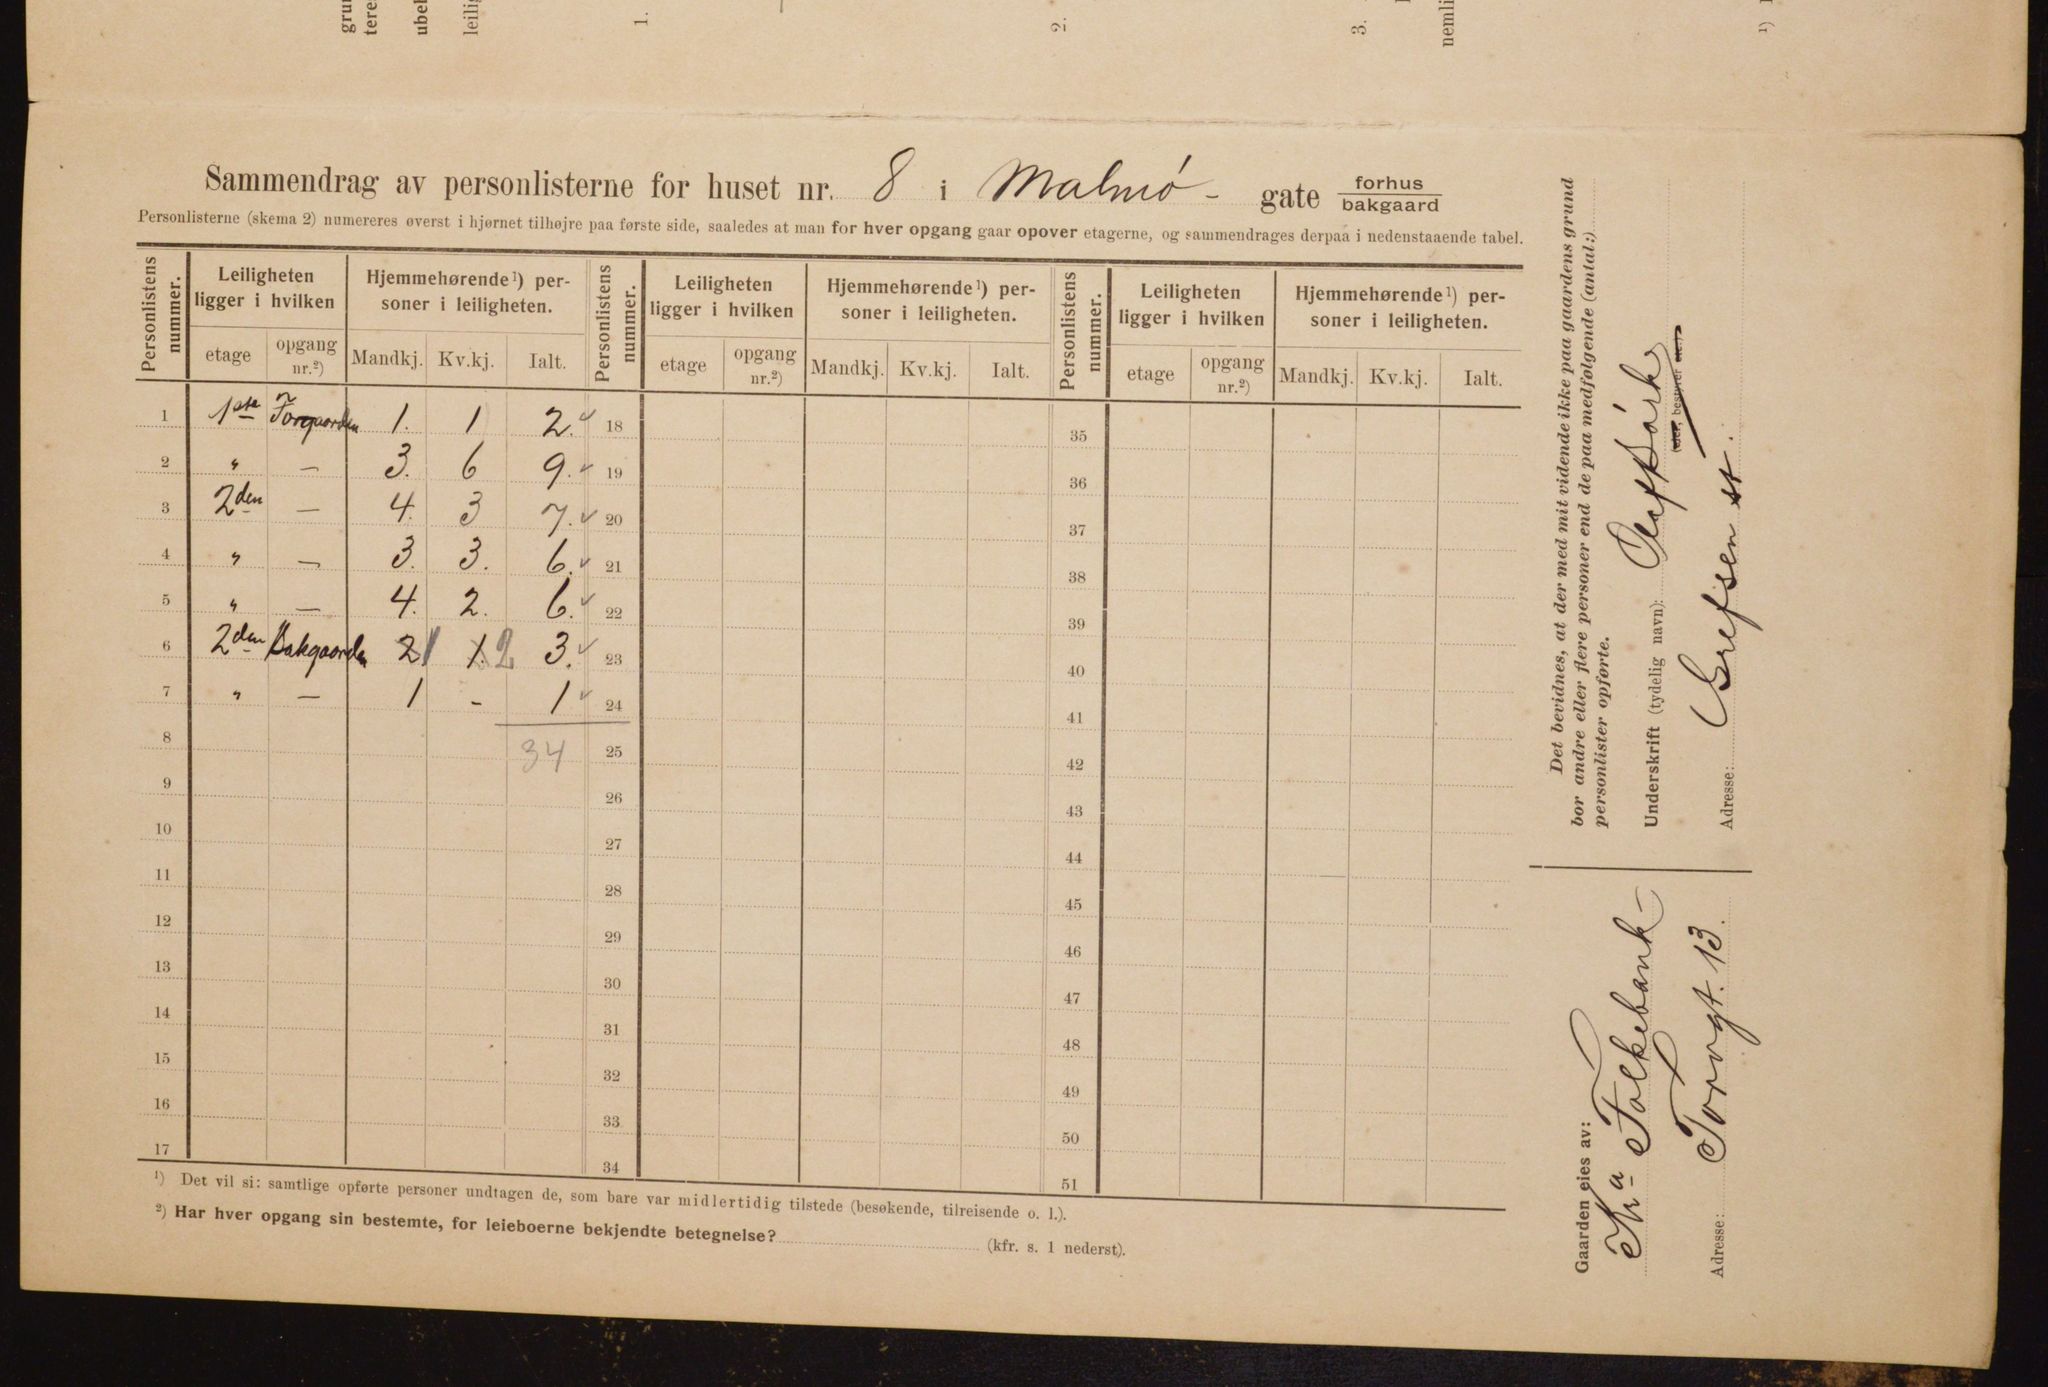 1. 2. 3. nemli 1)
Sammendrag av personlisterne for huset nr. 8 i Malmö- gate forhus bakgaard
Personlisterne (skema 2) numereres øverst i hjørnet tilhøjre paa første side, saaledes at man for hver opgang gaar opover etagerne, og sammendrages derpaa i nedenstaaende tabel.
Personlistens nummer. Leiligheten ligger i hvilken Hjemmehørende¹) personer i leiligheten. Personlistens nummer. Leiligheten ligger i hvilken Hjemmehørende¹) personer i leiligheten. Personlistens nummer. Leiligheten ligger i hvilken Hjemmehørende¹) personer i leiligheten.
etage opgang nr.²) Mandkj. Kv.kj. Ialt. etage opgang nr.²) Mandkj. Kv.kj. Ialt. etage opgang nr.²) Mandkj. Kv.kj. Ialt.
1 1ste Forgaarden 1. 1 2. ✓ 18 35
2 " — 3. 6 9. ✓ 19 36
3 2den — 4. 3 7. ✓ 20 37
4 " — 3. 3. 6. ✓ 21 38
5 " — 4. 2. 6. ✓ 22 39
6 2den Bakgaarden 2 1 1. 2 3. ✓ 23 40
7 " — 1 - 1 ✓ 24 41
8 34 25 42
9 26 43
10 27 44
11 28 45
12 29 46
13 30 47
14 31 48
15 32 49
16 33 50
17 34 51
¹) Det vil si: samtlige opførte personer undtagen de, som bare var midlertidig tilstede (besøkende, tilreisende o. l.).
²) Har hver opgang sin bestemte, for leieboerne bekjendte betegnelse? (kfr. s. 1 nederst).
Det bevidnes, at der med mit vidende ikke paa gaardens grund
bor andre eller flere personer end de paa medfølgende (antal:)
personlister opførte.
Underskrift (tydelig navn): Olaf
(eier, bestyrer etc.)
Adresse: Grefsen st.
Gaarden eies av:
Kra Folkebank-
Adresse: Torvgt. 13.